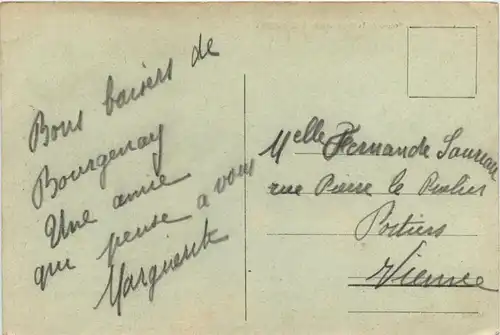 Bons baisers de
Bourgenay
Une amie
qui pense a vous
Marguerite
Melle Fernande
rue Pierre le
Poitiers
Vienne